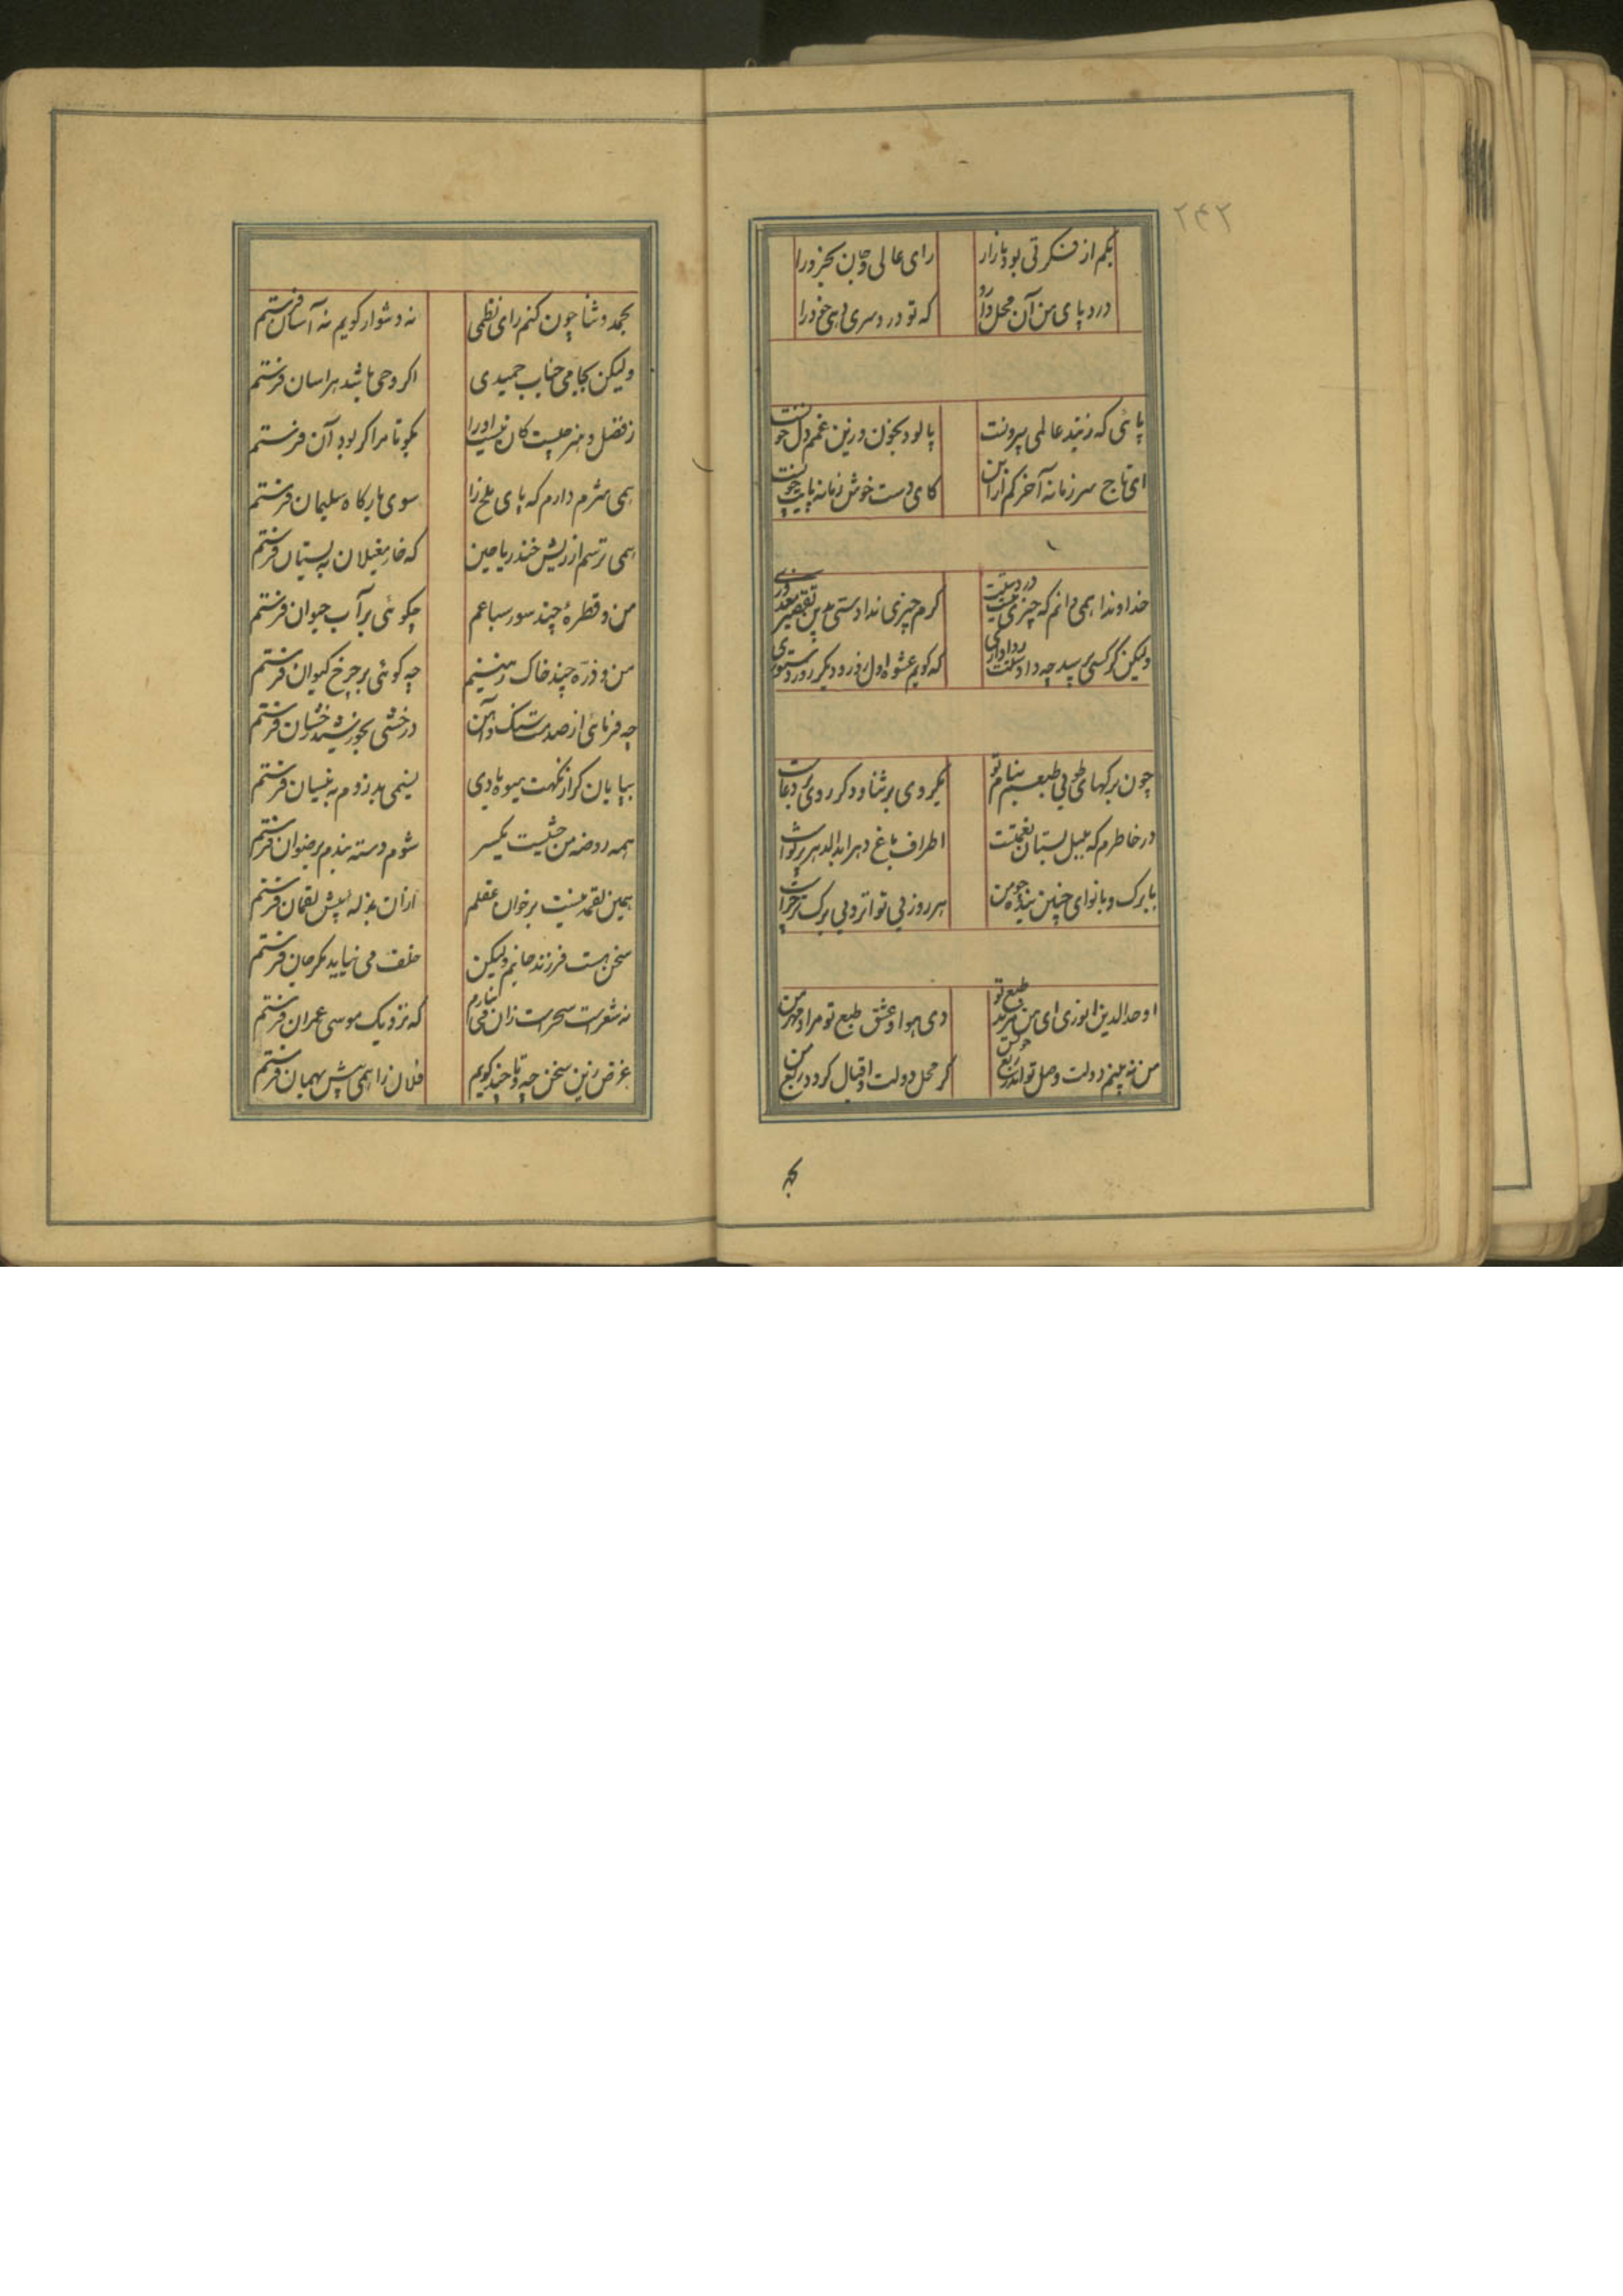 ۲۴۲
بکم از فکرتی بود بازار رای عالی و جان بخرد را
درد پای من آن محل دارد که تو درد سری دهی خود را
پائی که ز بند عالمی بیرونست پالود بخون و زین غمم دل خونست
ای تاج سر زمانه آخر کم ازین کای دست خوش زمانه پایت چونست
خداوندا همی دانم که چیزی نیست در دستت کرم چیزی ندادستی بدین تقصیر معذوری
ولیکن گر کسی پرسد چه دادستت روا داری که گویم عشوه اول روز و دیگر روز دستوری
چون برگهای طوبی طبعم بنام تو یکروی بر ثنا و دگر روی بر دعاست
در خاطرم که بلبل بستان نعمتست اطراف باغ دهر ابدالدهر پر نواست
با برگ و با نوای چنین بنده چو من هر روز بی نواتر و بی برگ تر چراست
اوحدالدین انوری ای من مرید طبع تو وی هوا و عشق طبع تو مراد مهر من
من نه بینم دولت وصل تو اندر ربع خویش گر محل دولت و اقبال گردد ربع من
بحمد
بحمد و ثنا چون کنم رای نظمی نه دشوار گویم نه آسان فرستم
ولیکن بجامی جناب حمیدی اگر وحی باشد هراسان فرستم
ز فضل و هنر چیست کان نیست او را بگو تا مرا گر بود آن فرستم
همی شرم دارم که پای ملخ را سوی بارگاه سلیمان فرستم
همی ترسم از ریش خند ریاحین که خار مغیلان به بستان فرستم
من و قطرهٔ چند سور سباعم چگوئی بر آب حیوان فرستم
من و ذره چند خاک زمینیم چه گوئی بر چرخ کیوان فرستم
چه فرمائی از صدمت سنگ و آهن درخشی بخورشید رخشان فرستم
بپایان گر از نکهت میوه بادی نسیمی بدزدم به نیسان فرستم
همه روضه من حشیشت یکسر شوم دسته بندم برضوان فرستم
همین لقمه نیست بر خوان عقلم از آن بذله پیش لقمان فرستم
سخن هست فرزند جانم ولیکن خلف می نیاید مگر جان فرستم
نه شعرست سحرست زان می نیارم که نزدیک موسی عمران فرستم
غرض زین سخن چه و تا چند گویم فلان را همی پیش بهمان فرستم